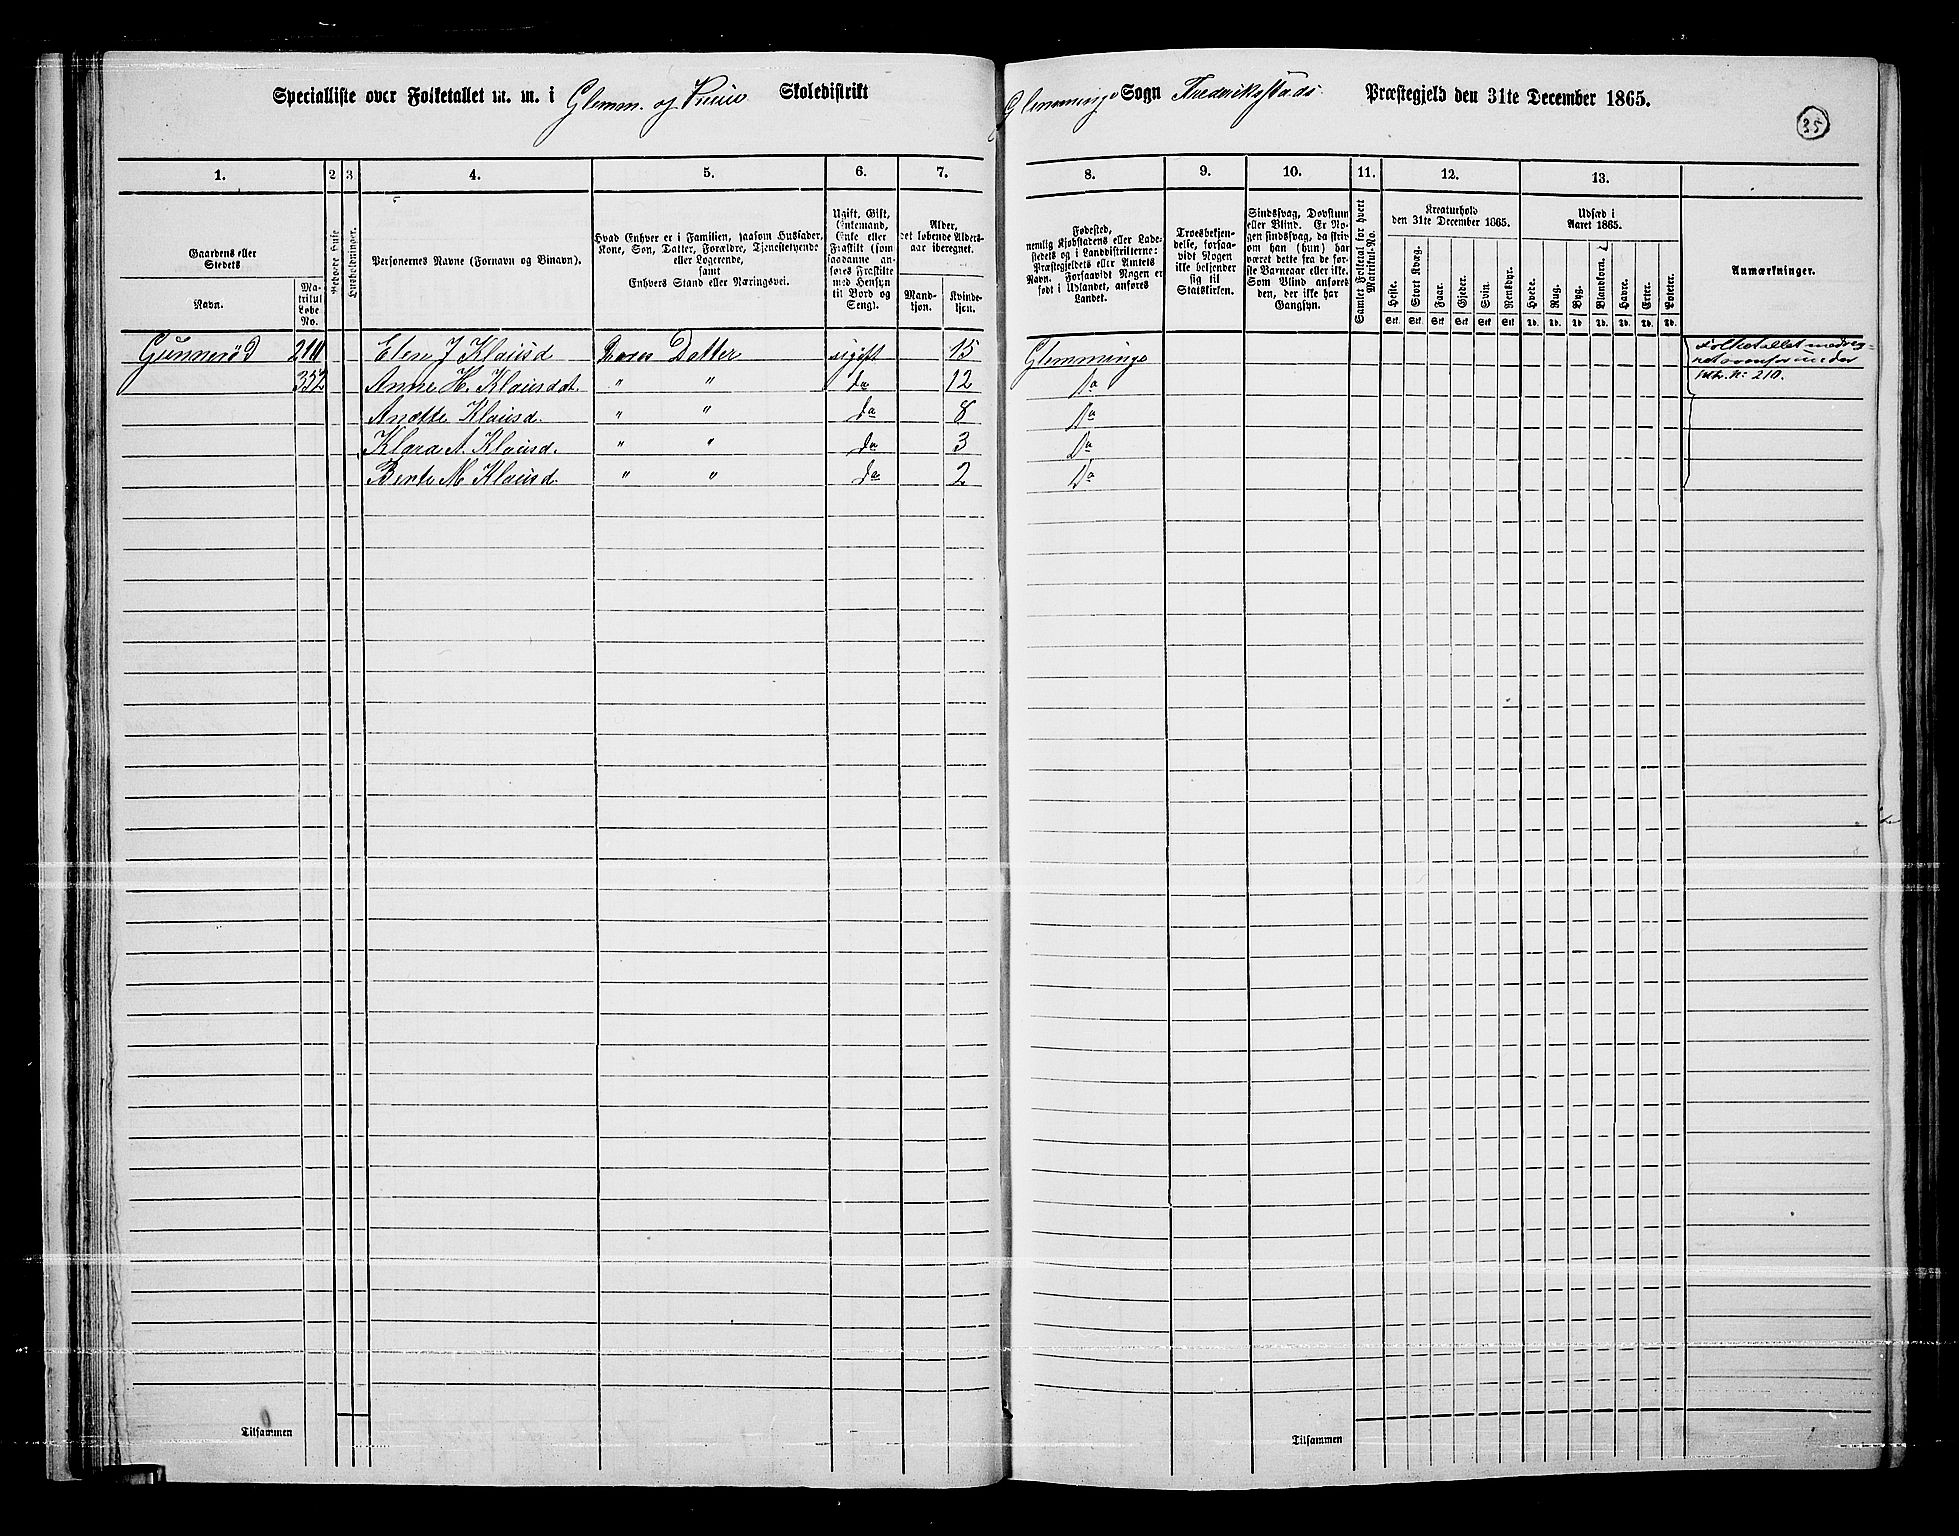 Specialliste over Folketallet m. m. i Glemm. og Skoledistrikt
Glemminge Sogn Frederikstads Præstegjeld den 31te December 1865.
35
1. 2 3 4. 5. 6. 7.
Gaardens eller Stedets
Navn.
Matrikul Løbe No.
Beboede Huse
Husholdninger.
Personernes Navne (Fornavn og Binavn).
Hvad Enhver er i Familien, saasom Husfader,
Kone, Søn, Datter, Forældre, Tjenestetyende
eller Logerende,
samt
Enhvers Stand eller Næringsvei.
Ugift, Gift,
Enkemand,
Enke eller
Fraskilt (som
saadanne an-
føres Fraskilte
med Hensyn
til Bord og
Seng).
Alder,
det løbende Alders-
aar iberegnet.
Mand-
kjøn.
Kvinde-
kjøn.
8. 9. 10. 11. 12. 13.
Fødested,
nemlig Kjøbstadens eller Lade-
stedets og i Landdistrikterne:
Præstegjeldets eller Amtets
Navn. Forsaavidt Nogen er
født i Udlandet, anføres
Landet.
Troesbekjen-
delse, forsaa-
vidt Nogen
ikke bekjender
sig til
Statskirken.
Sindssvag, Døvstum
eller Blind. Er No-
gen sindssvag, da skriv
om han (hun) har
været dette fra de før-
ste Barneaar eller ikke.
Som Blind anføres
den, der ikke har
Gangsyn.
Samlet Folketal for hvert Matrikul-No.
Kreaturhold
den 31te December 1865.
Heste. Stort Kvæg. Faar. Gjeder. Svin. Rensdyr.
Stk. Stk. Stk. Stk. Stk. Stk.
Udsæd i
Aaret 1865.
Hvede. Rug. Byg. Blandkorn. Havre. Erter. Poteter.
Td. Td. Td. Td. Td. Td. Td.
Anmærkninger.
Gunnerød 211 Elen J Klausd Deres Datter ugift 15 Glemminge Folketallet medreg-
net ovenfor under
352 Anne H. Klausdat. " " do 12 Do Mtr. N: 210.
Anette Klausd. " " do 8 Do
Klara A. Klausd. " " do 3 Do
Bente M Klausd " " do 2 Do
Tilsammen
Tilsammen